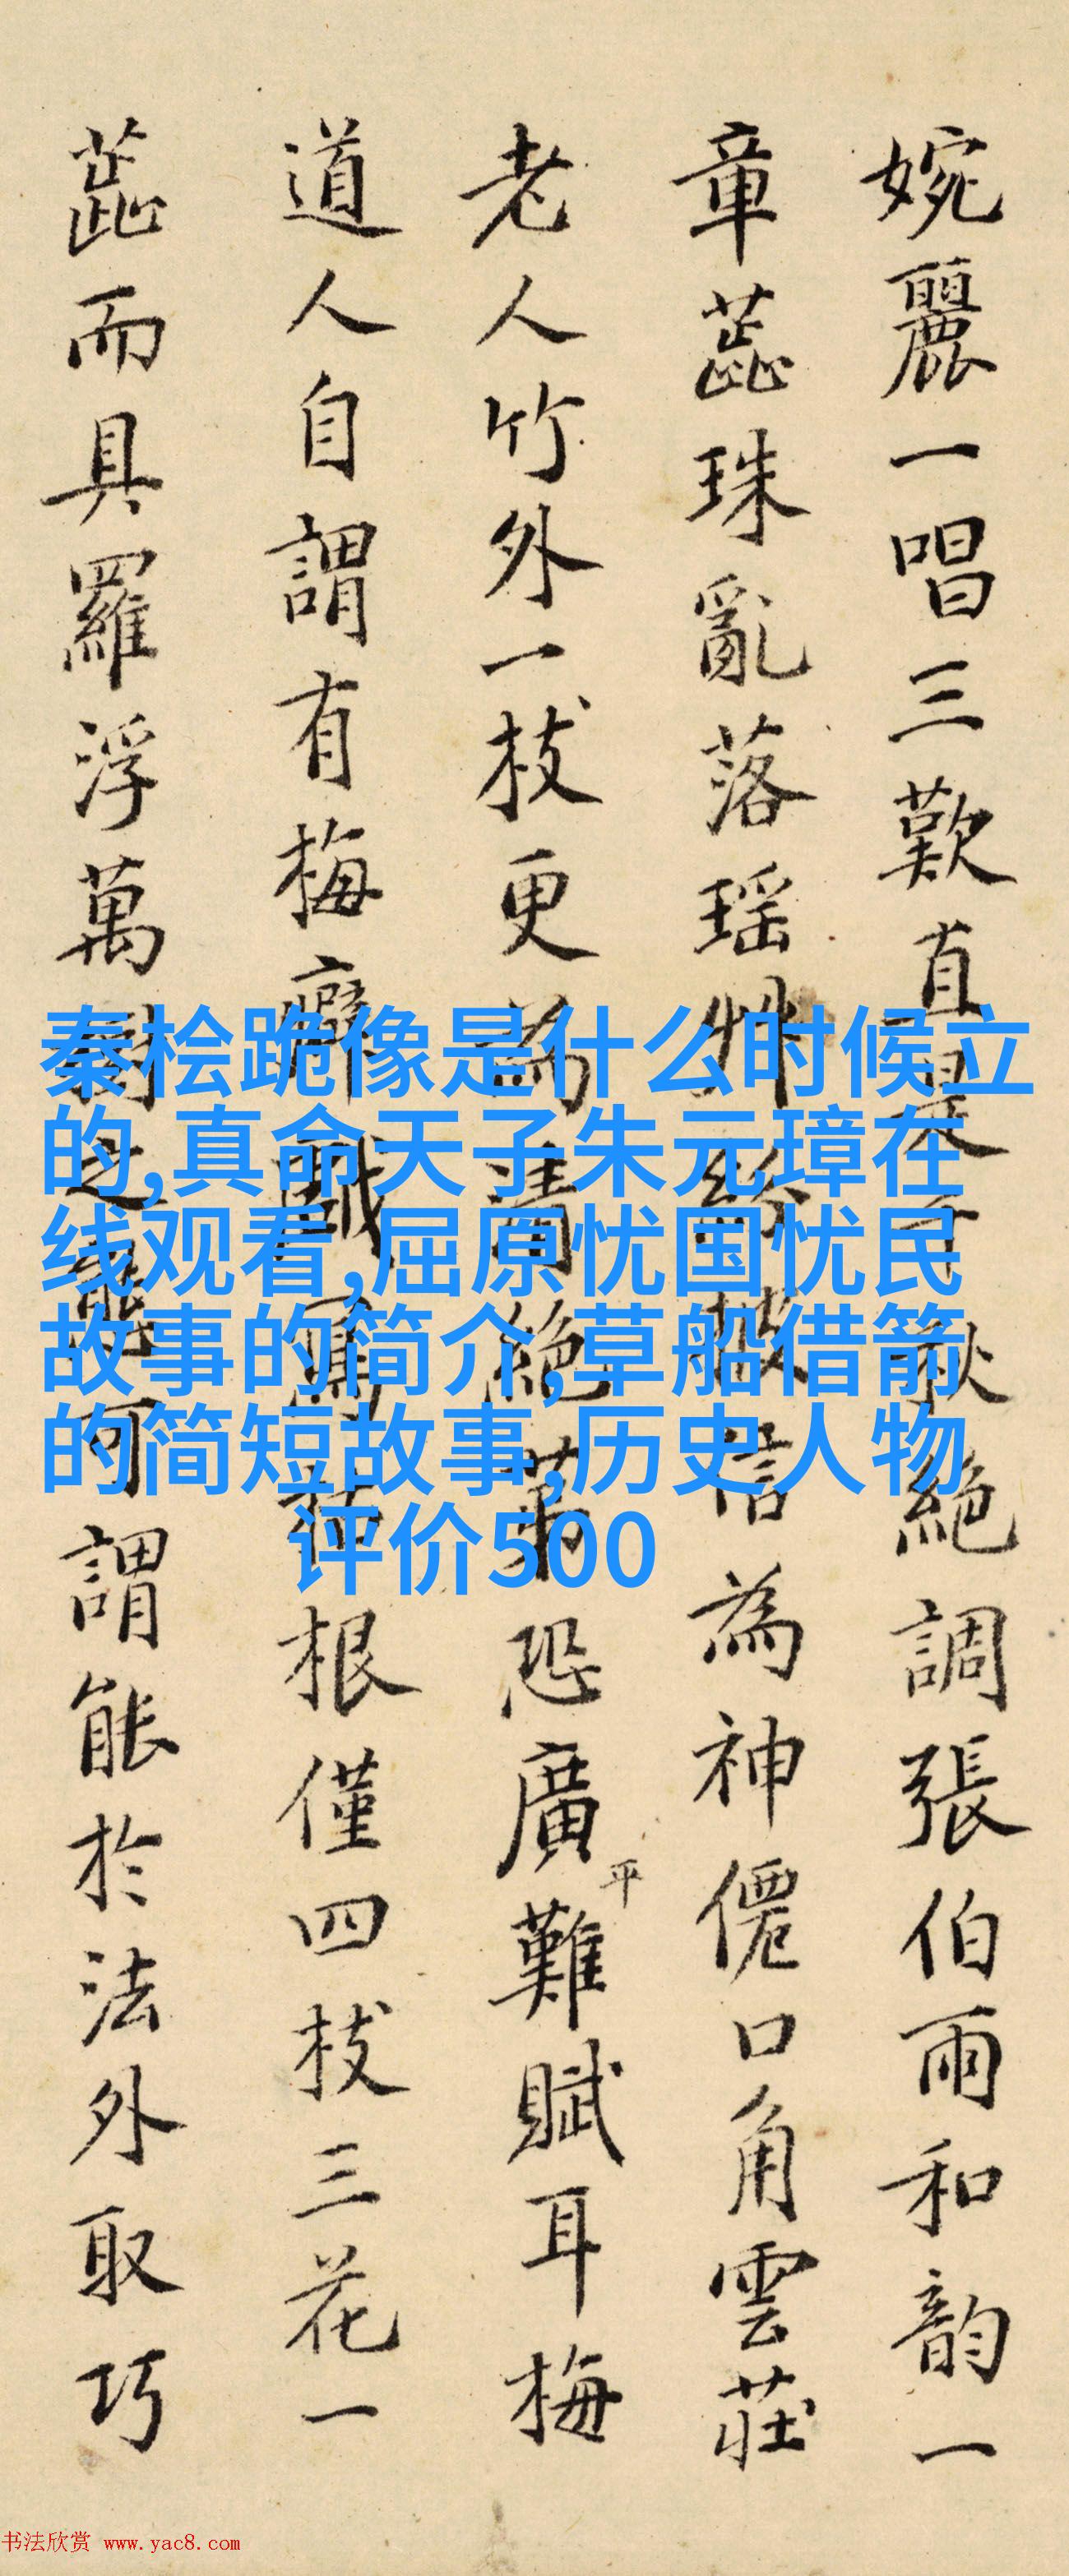 婉麗一唱三歎直是千秋絕調張伯雨和韵一
章蕋珠亂落瑶艸紛披信為神僊口角雲莊
老人竹外一枝更為清絕苐恐廣平難賦耳梅
道人自謂有梅癖戲寫荒根僅四枝三花一
蕋而具羅浮萬樹之態可謂能於法外取巧
秦桧跪像是什么时候立
的,真命天子朱元璋在
线观看,屈原忧国忧民
故事的简介,草船借箭
的简短故事,历史人物
评价500
书法欣赏 www.yac8.com